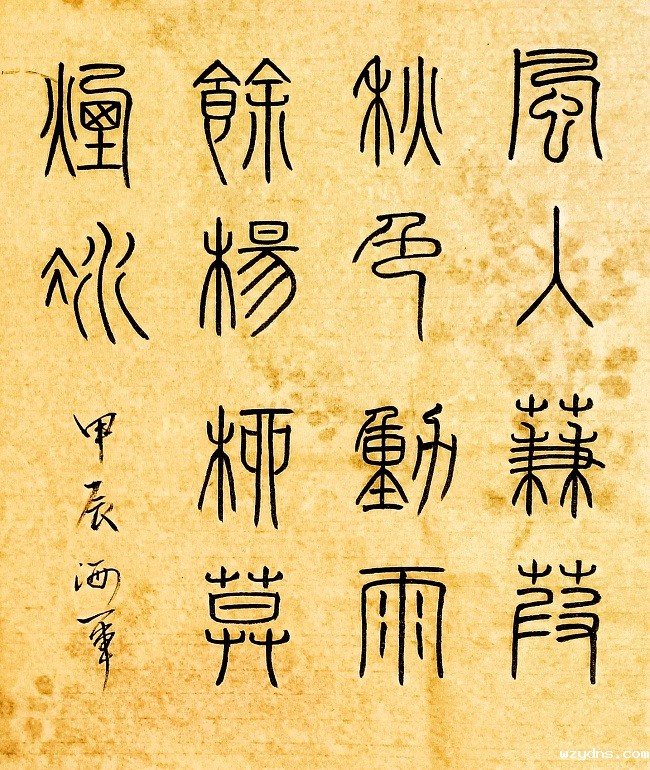 風入蒹葭
秋色動雨
餘楊柳莫
煙冰
甲辰海军
wzydns.com